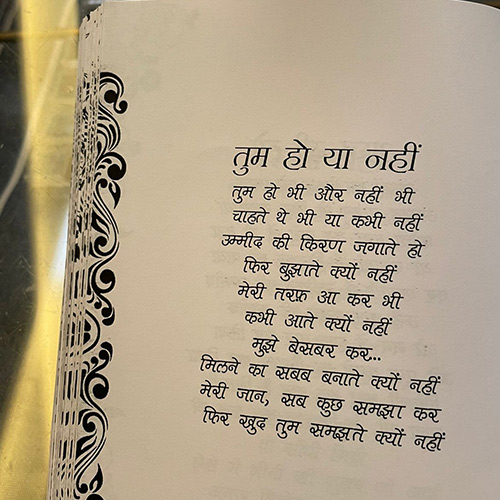 तुम हो या नहीं
तुम हो भी और नहीं भी
चाहते थे भी या कभी नहीं
उम्मीद की किरण जगाते हो
फिर बुझाते क्यों नहीं
मेरी तरफ़ आ कर भी
कभी आते क्यों नहीं
मुझे बेसबर कर..
मिलने का सबब बनाते क्यों नहीं
मेरी जान, सब कुछ समझा कर
फिर खुद तुम समझते क्यों नहीं